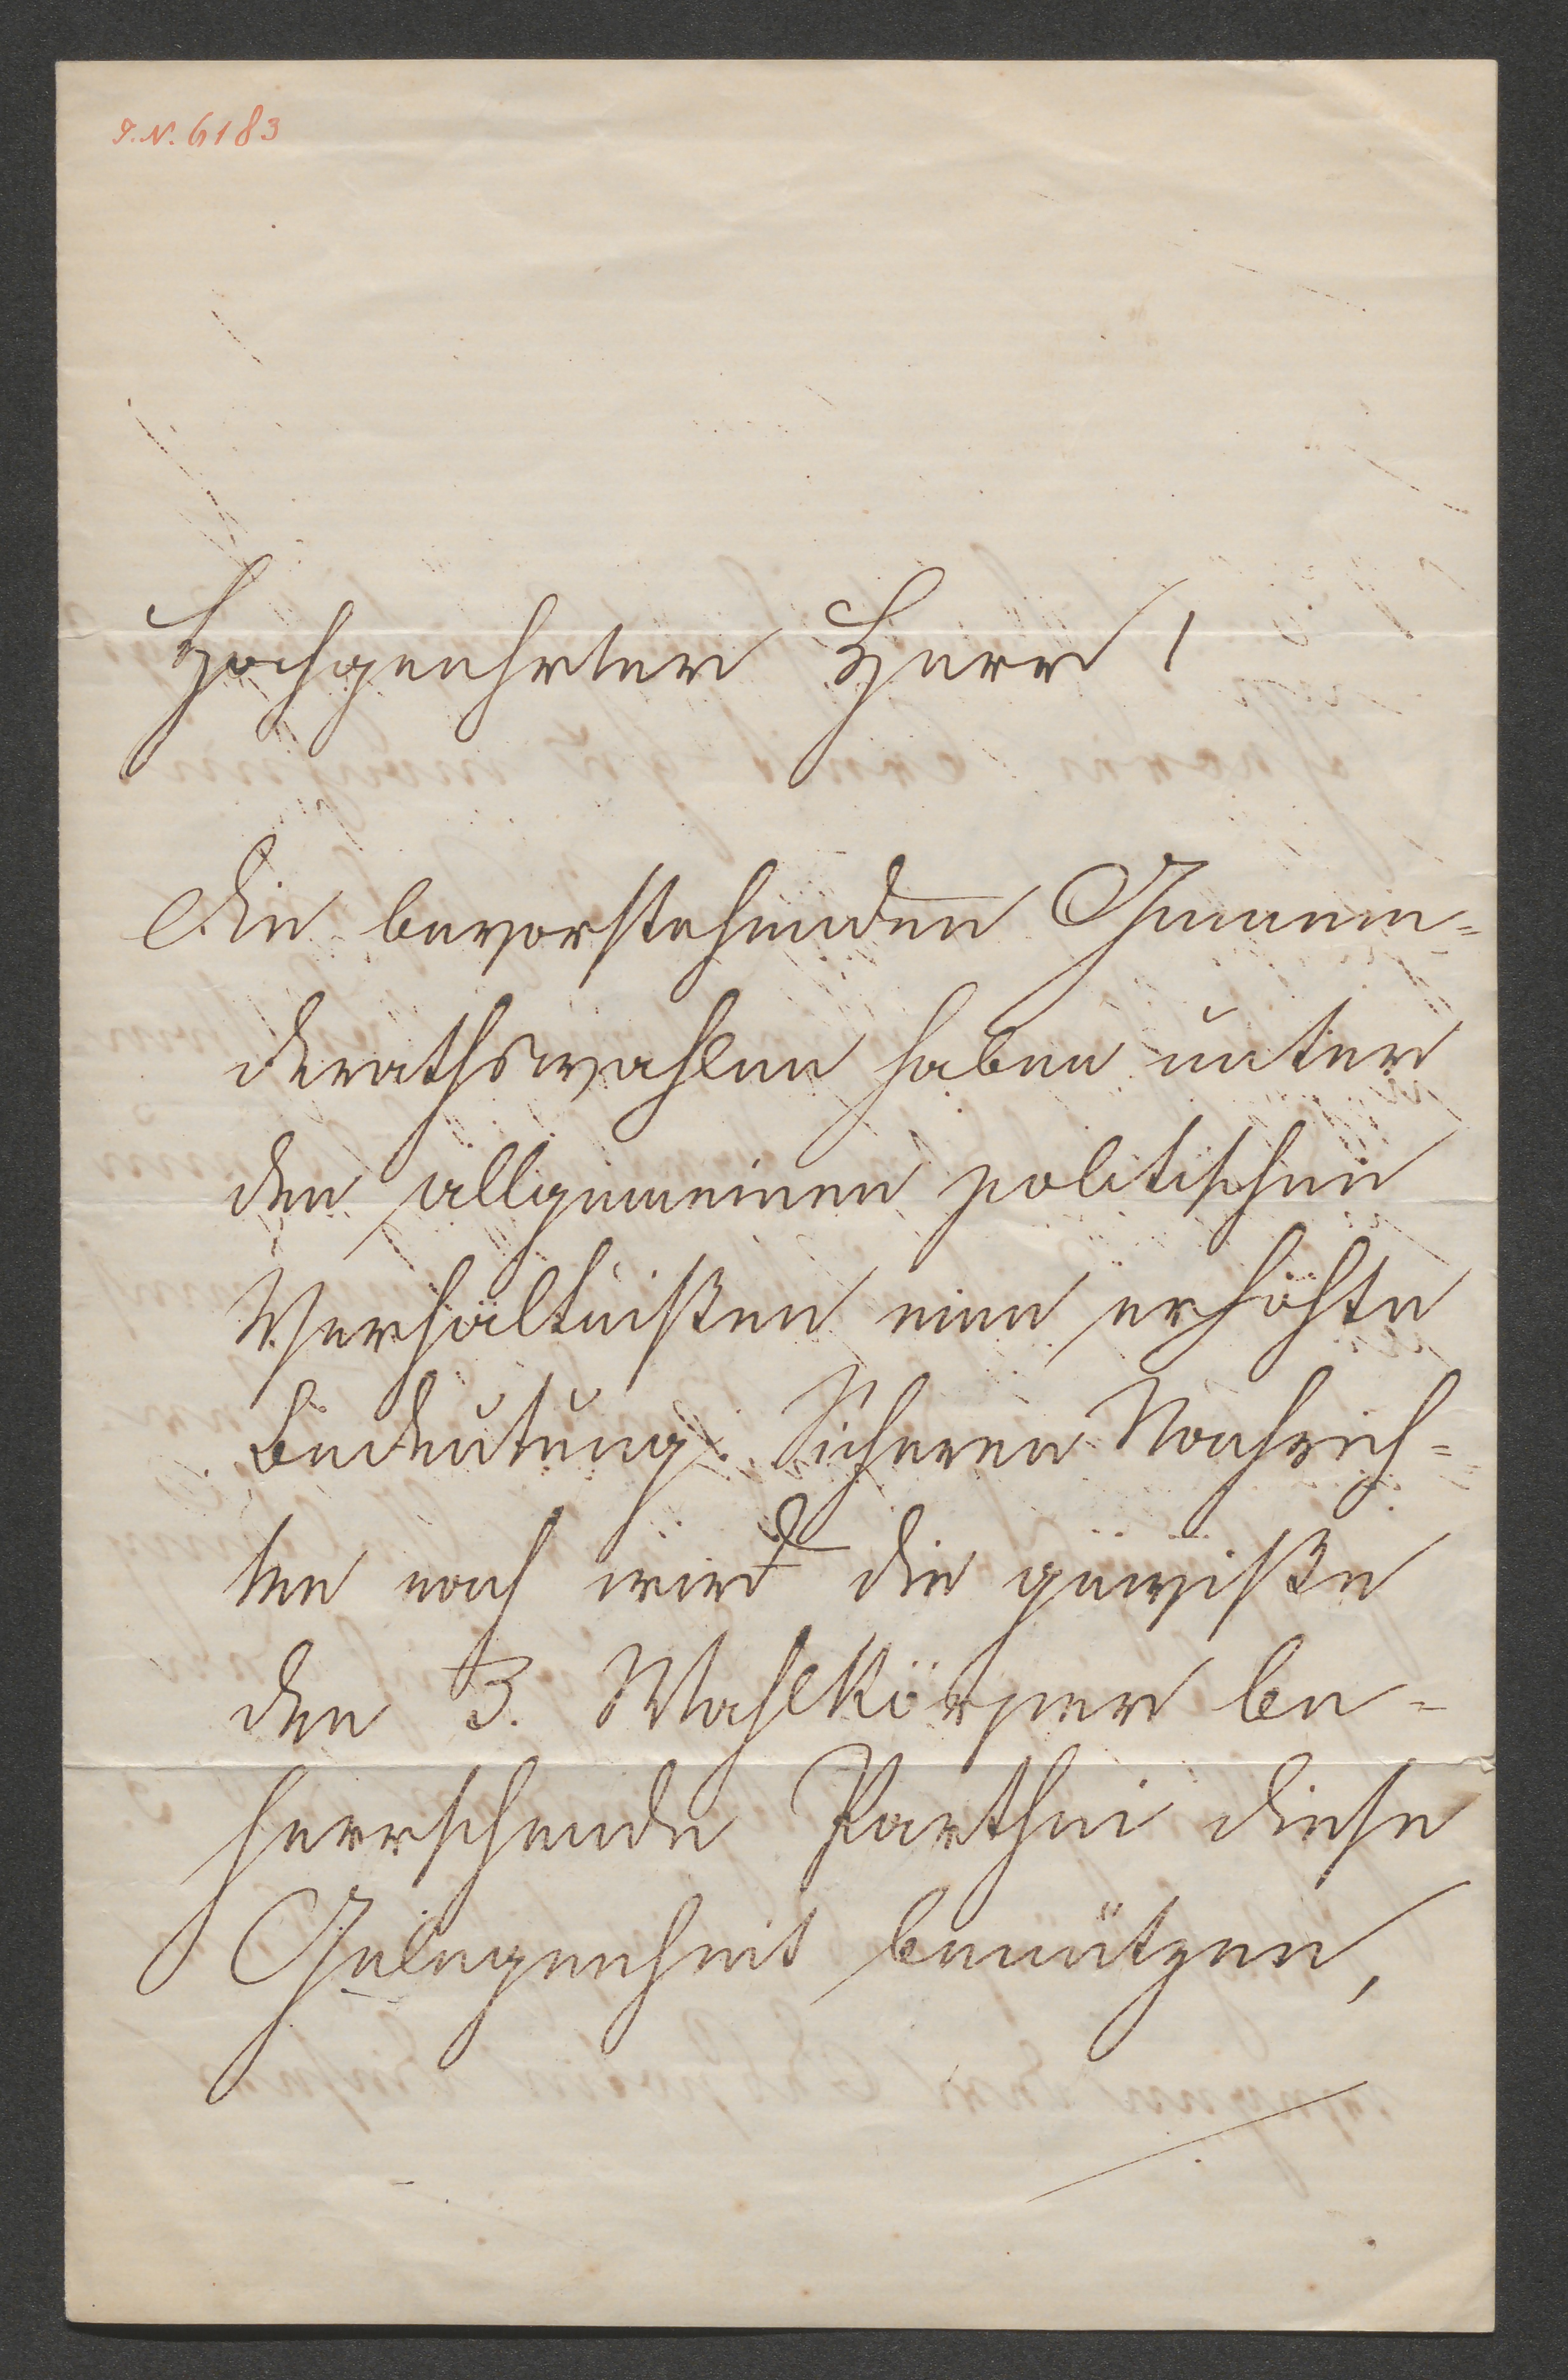 I.N. 6183
Hochgeehrter Herr!
Die bevorstehenden Gemein=
derathswahlen haben unter
den allgemeinen politischen
Verhältnißen eine erhöhte
Bedeutung. Sicheren Nachrich=
ten nach wird die gewiße
den 3. Wahlkörper be=
herrschende Parthei diese
Gelegenheit benützen,